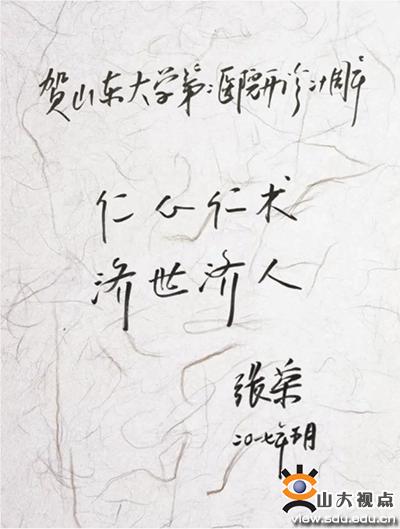 贺山东大学第二医院开诊二十周年
仁心仁术
济世济人
张荣
二〇一七年五月
山大视点
view.sdu.edu.cn